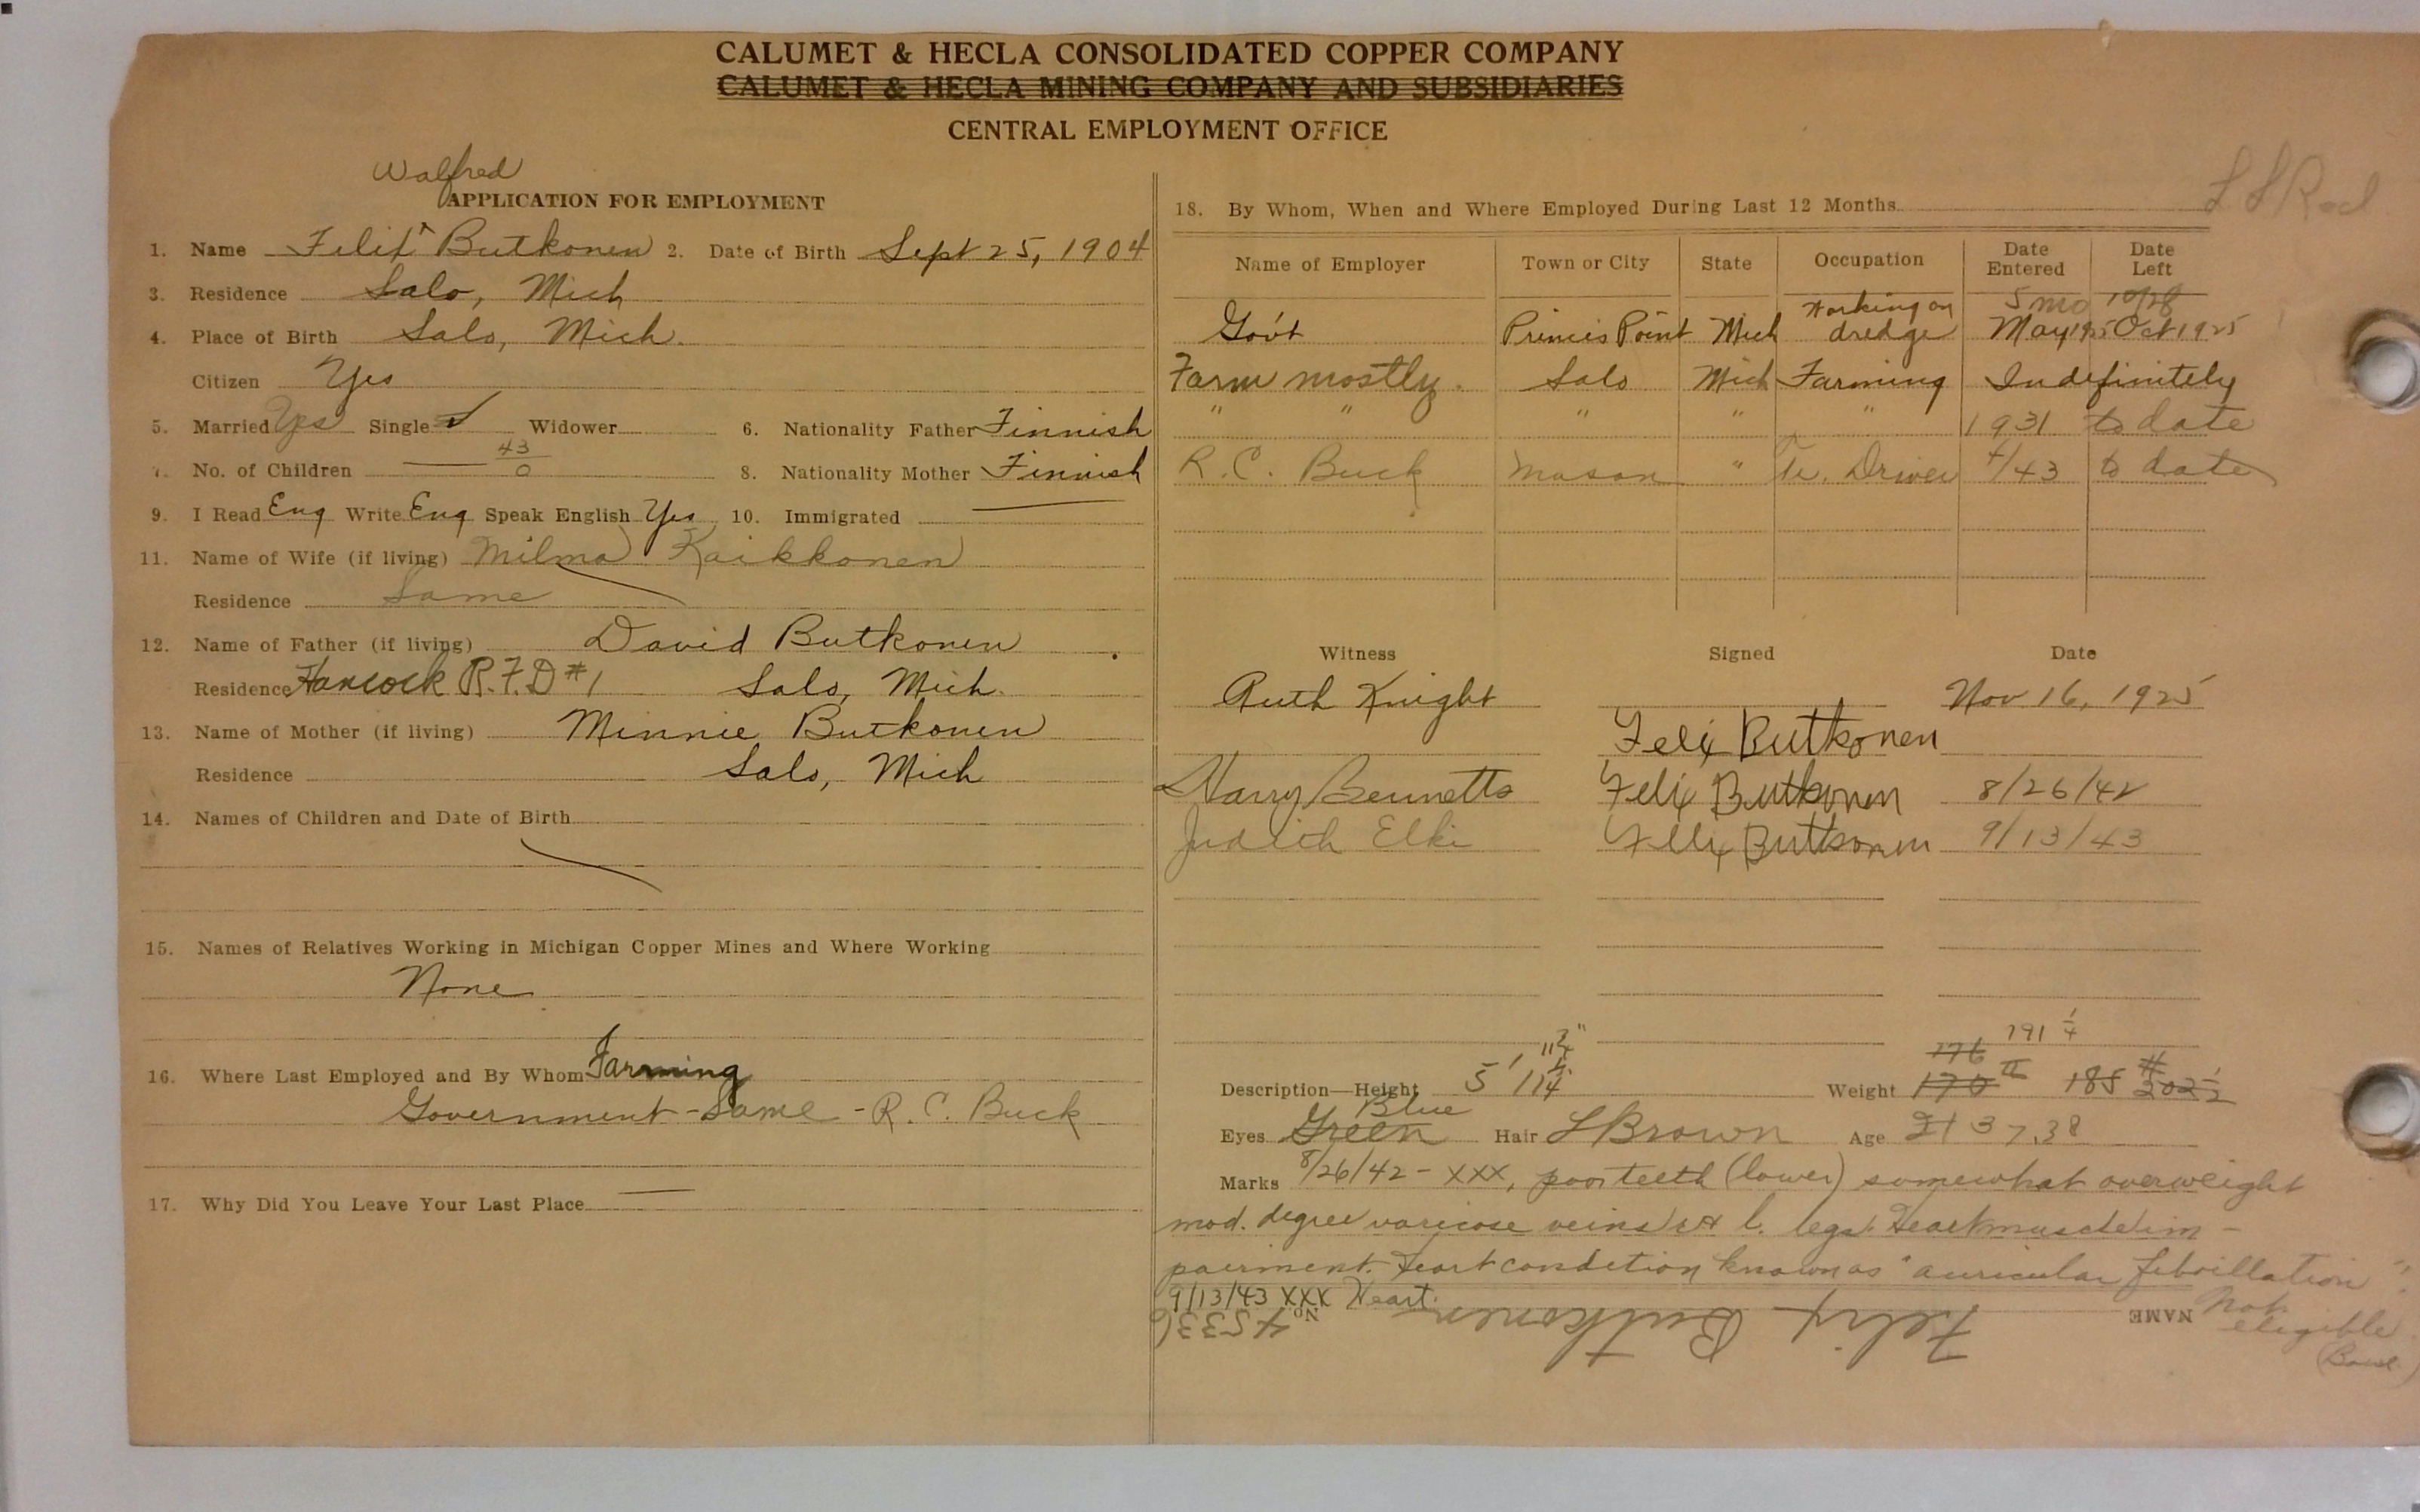 CALUMET & HECLA CONSOLIDATED COPPER COMPANY
CALUMET & HECLA MINING COMPANY AND SUBSIDIARIES
CENTRAL EMPLOYMENT OFFICE
Walfred
APPLICATION FOR EMPLOYMENT
1. Name Felix ^ Butkonen 2. Date of Birth Sept 25, 1904
3. Residence Salo, Mich
4. Place of Birth Salo, Mich.
Citizen Yes
5. Married Yes Single ✓ Widower 6. Nationality Father Finnish
7. No. of Children — 43 0 8. Nationality Mother Finnish
9. I Read Eng Write Eng Speak English Yes 10. Immigrated —
11. Name of Wife (if living) Milma Kaikkonen
Residence Same
12. Name of Father (if living) David Butkonen
Residence Hancock R.F.D #1 Salo, Mich.
13. Name of Mother (if living) Minnie Butkonen
Residence Salo, Mich
14. Names of Children and Date of Birth
15. Names of Relatives Working in Michigan Copper Mines and Where Working
None
16. Where Last Employed and By Whom Farming
Government - Same - R. C. Buck
17. Why Did You Leave Your Last Place —
18. By Whom, When and Where Employed During Last 12 Months
Name of Employer Town or City State Occupation Date Entered Date Left
5 mo 10/28
Gov't Princis Point Mich Working on dredge May 1925 Oct 1925
Farm mostly. Salo Mich Farming Indefinitely
" " " " " 1931 to date
R. C. Buck Mason " Tr. Driver 4/43 to date
Witness Signed Date
Ruth Knight Nov 16, 1925
Felix Butkonen
Harry Bennetts Felix Butkonen 8/26/42
Judith Elki Felix Butkonen 9/13/43
191 1/4
176
Description—Height 5' 11 1/4 Weight 170 185 # 202 1/2
Blue
Eyes Green Hair L Brown Age 21 37, 38
Marks 8/26/42 - XXX, poor teeth (lower) somewhat overweight
mod. degree varicose veins r & l. legs. Heart muscle im-
pairment. Heart condition known as "auricular fibrillation".
9/13/43 XXX Heart.
Not eligible
NAME Felix Butkonen No. 45336